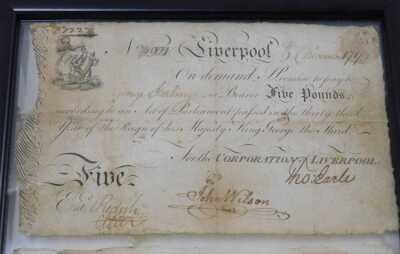 No Liverpool
On demand I Promise to pay to
or Bearer Five Pounds,
according to an Act of Parliament passed in the thirty third
Year of the Reign of his Majesty King George the Third.
For the CORPORATION of LIVERPOOL.
Five
Thos. Earle
Entd.
John Wilson